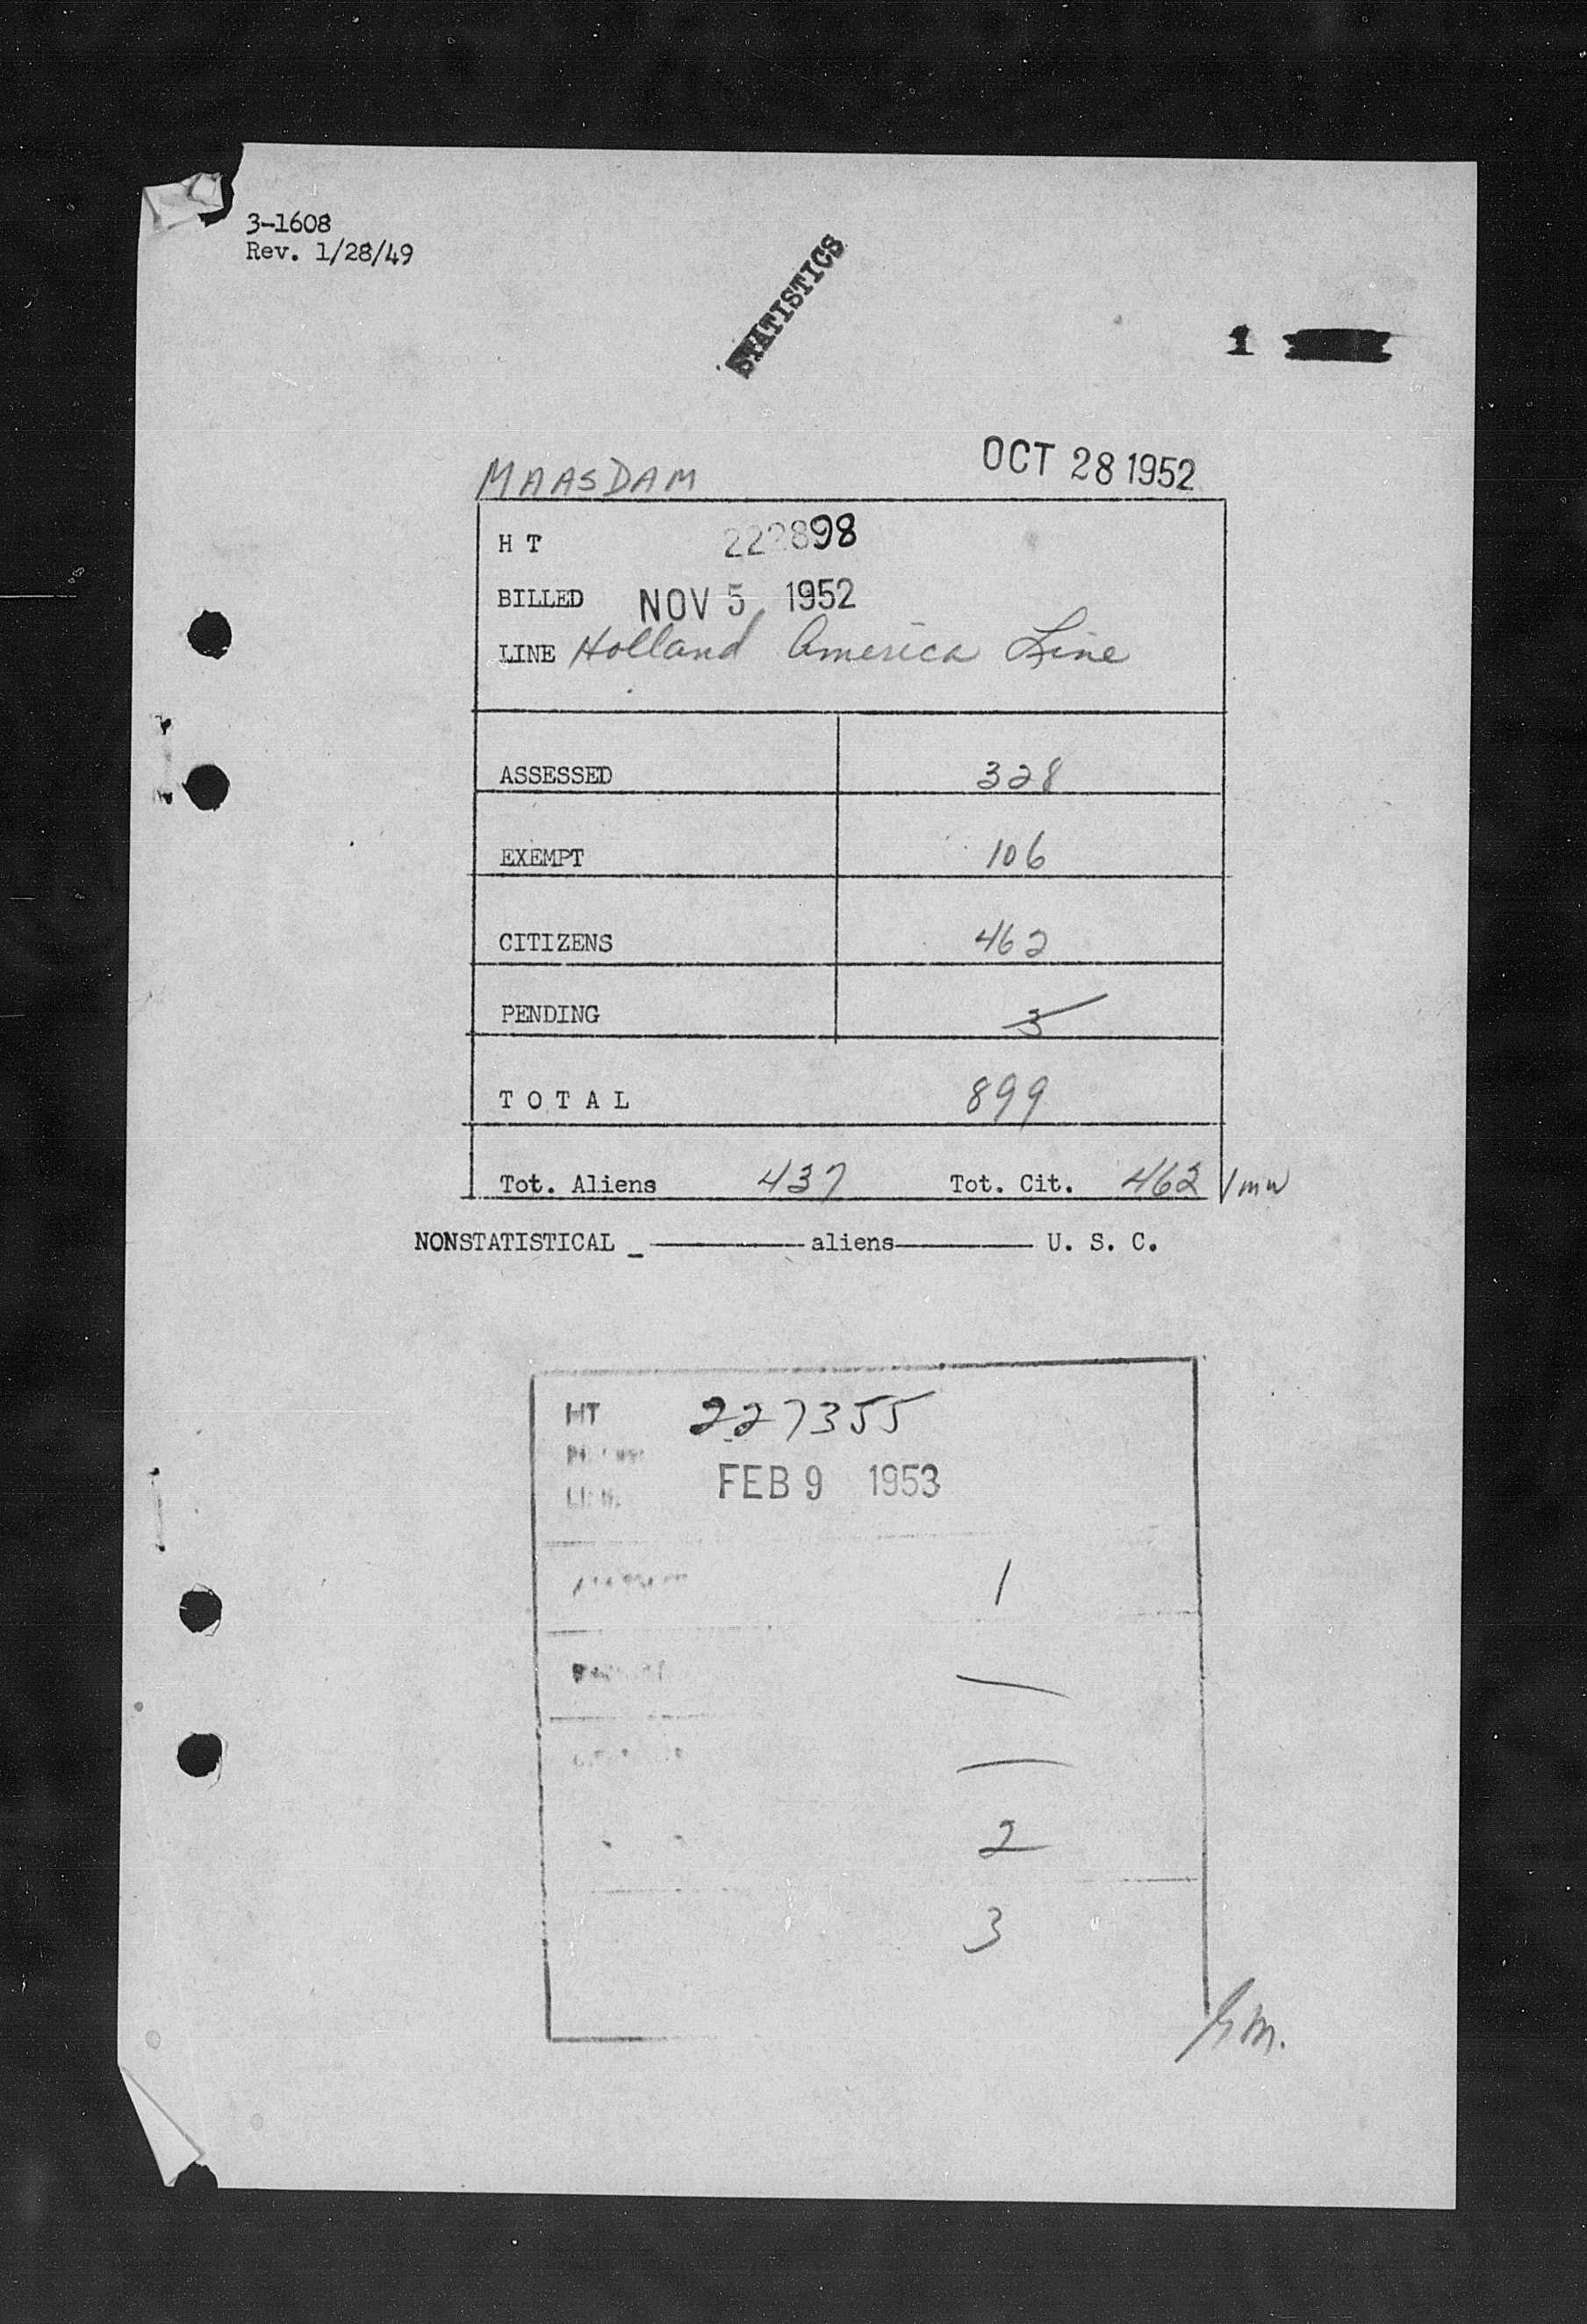 3-1608
Rev. 1/28/49
STATISTICS
1
MAASDAM OCT 28 1952
H T 222898
BILLED NOV 5 1952
LINE Holland America Line
ASSESSED 328
EXEMPT 106
CITIZENS 462
PENDING 3
T O T A L 899
Tot. Aliens 437 Tot. Cit. 462 /mw
NONSTATISTICAL _ aliens U. S. C.
HT 227355
FEB 9 1953
1
2
3